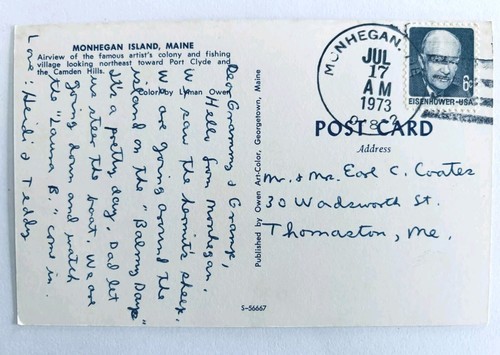 MONHEGAN ISLAND, MAINE
Airview of the famous artist's colony and fishing
village looking northeast toward Port Clyde and
the Camden Hills.
Color by Lyman Owen
Dear Grammy & Gramp,
Hello from Monhegan.
We saw the hermit's sheep.
We are going around the
island on the "Balmy Days"
It's a pretty day. Dad let
us steer the boat. We are
going down and watch
the "Laura B." come in.
Love, Heidi & Teddy
Published by Owen Art-Color, Georgetown, Maine
S-56667
MONHEGAN,
JUL
17
AM
1973
6c
EISENHOWER·USA
POST CARD
Address
Mr. & Mrs. Earl C. Coates
30 Wadsworth St.
Thomaston, Me.